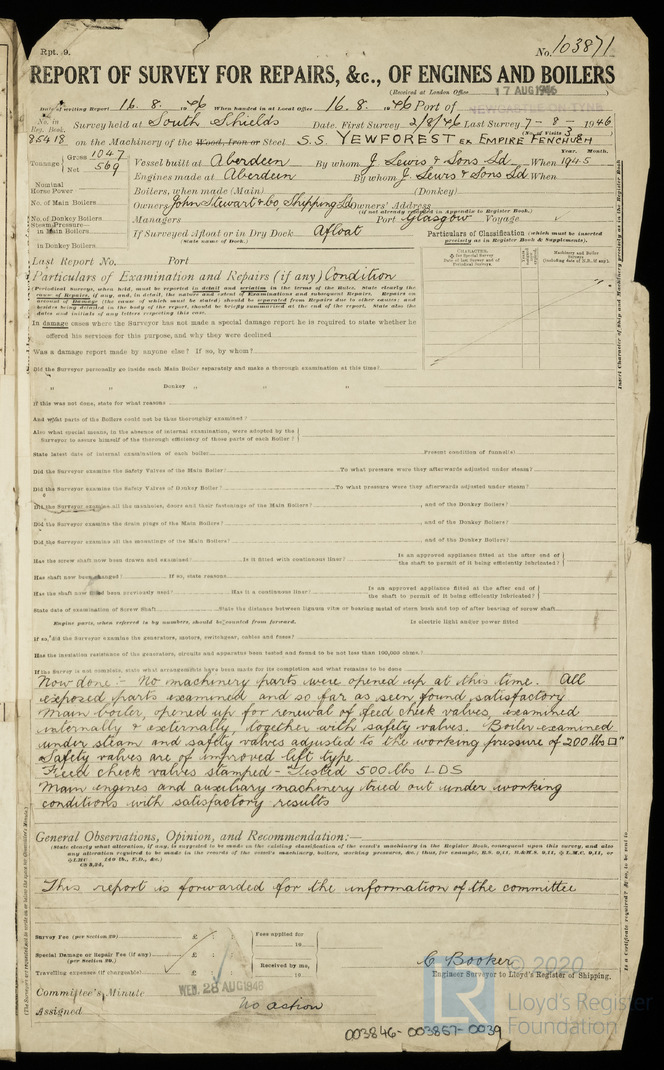 Rpt. 9.
No. 103871
REPORT OF SURVEY FOR REPAIRS, &c., OF ENGINES AND BOILERS
(Received at London Office 17 AUG 1946 )
Date of writing Report 16. 8. 1946 When handed in at Local Office 16. 8. 1946 Port of NEWCASTLE-ON-TYNE
No. in Reg. Book. Survey held at South Shields Date. First Survey 2/8/46 Last Survey 7 - 8 - 1946
(No. of Visits 3 )
85418 on the Machinery of the Wood, Iron or Steel S.S. YEWFOREST ex EMPIRE FENCHURCH
Tonnage Gross 1047 Net 569
Vessel built at Aberdeen By whom J. Lewis & Sons Ld When 1945
Year. Month.
Engines made at Aberdeen By whom J. Lewis & Sons Ld When
Nominal Horse Power
Boilers, when made (Main) (Donkey)
No. of Main Boilers
Owners John Stewart & Co, Shipping Ld Owners' Address
(if not already recorded in Appendix to Register Book.)
No. of Donkey Boilers
Managers Port Glasgow Voyage
Steam Pressure—in Main Boilers
If Surveyed Afloat or in Dry Dock Afloat
(State name of Dock.)
in Donkey Boilers
Particulars of Classification (which must be inserted precisely as in Register Book & Supplements).
Last Report No. Port
Particulars of Examination and Repairs (if any) Condition
(Periodical Surveys, when held, must be reported in detail and seriatim in the terms of the Rules. State clearly the
cause of Repairs, if any, and, in detail, the nature and extent of Examinations and subsequent Repairs. Repairs on
account of Damage (the cause of which must be stated) should be separated from Repairs due to other causes; and
besides being detailed in the body of the report, should be briefly summarised at the end of the report. State also the
dates and initials of any letters respecting this case.
In damage cases where the Surveyor has not made a special damage report he is required to state whether he
offered his services for this purpose, and why they were declined
Was a damage report made by anyone else? If so, by whom?
Did the Surveyor personally go inside each Main Boiler separately and make a thorough examination at this time?
" " Donkey " " "
If this was not done, state for what reasons
And what parts of the Boilers could not be thus thoroughly examined?
Also what special means, in the absence of internal examination, were adopted by the
Surveyor to assure himself of the thorough efficiency of those parts of each Boiler?
State latest date of internal examination of each boiler Present condition of funnel(s)
Did the Surveyor examine the Safety Valves of the Main Boiler? To what pressure were they afterwards adjusted under steam?
Did the Surveyor examine the Safety Valves of Donkey Boiler? To what pressure were they afterwards adjusted under steam?
Did the Surveyor examine all the manholes, doors and their fastenings of the Main Boilers? , and of the Donkey Boilers?
Did the Surveyor examine the drain plugs of the Main Boilers? , and of the Donkey Boilers?
Did the Surveyor examine all the mountings of the Main Boilers? , and of the Donkey Boilers?
Has the screw shaft now been drawn and examined? Is it fitted with continuous liner? Is an approved appliance fitted at the after end of the shaft to permit of it being efficiently lubricated?
Has shaft now been changed? If so, state reasons
Has the shaft now fitted been previously used? Has it a continuous liner? Is an approved appliance fitted at the after end of the shaft to permit of it being efficiently lubricated?
State date of examination of Screw Shaft State the distance between lignum vitæ or bearing metal of stern bush and top of after bearing of screw shaft
Engine parts, when referred to by numbers, should be counted from forward. Is electric light and/or power fitted
If so, did the Surveyor examine the generators, motors, switchgear, cables and fuses?
Has the insulation resistance of the generators, circuits and apparatus been tested and found to be not less than 100,000 ohms
If the Survey is not complete, state what arrangements have been made for its completion and what remains to be done
Now done :- No machinery parts were opened up at this time. All
exposed parts examined and so far as seen found satisfactory
Main boiler, opened up for renewal of feed check valves, examined
internally & externally, together with safety valves. Boiler examined
under steam and safety valves adjusted to the working pressure of 200 lbs □"
Safety valves are of improved lift type.
Feed check valves stamped - Tested 500 lbs LDS
Main engines and auxiliary machinery tried out under working
conditions with satisfactory results
General Observations, Opinion, and Recommendation:—
(State clearly what alteration, if any, is suggested to be made in the existing classification of the vessel's machinery in the Register Book, consequent upon this survey, and also
any alteration required to be made in the records of the vessel's machinery, boilers, working pressures, &c.; thus, for example, B.S. 9,11, B.&M.S. 9,11, or L.M.C. 9,11, or
This report is forwarded for the information of the committee
Survey Fee (per Section 29) £ : :
Fees applied for 19
Special Damage or Repair Fee (if any) (per Section 29.) £ : :
Received by me, 19
Travelling expenses (if chargeable) £ : :
C Booker
Engineer Surveyor to Lloyd's Register of Shipping.
Committee's Minute WED. 28 AUG 1946
Assigned No action
003846-003857-0039
© 2020
LR
Lloyd's Register
Foundation
Insert Character of Ship and Machinery precisely as in the Register Book
Is a Certificate required? If so, to be sent to